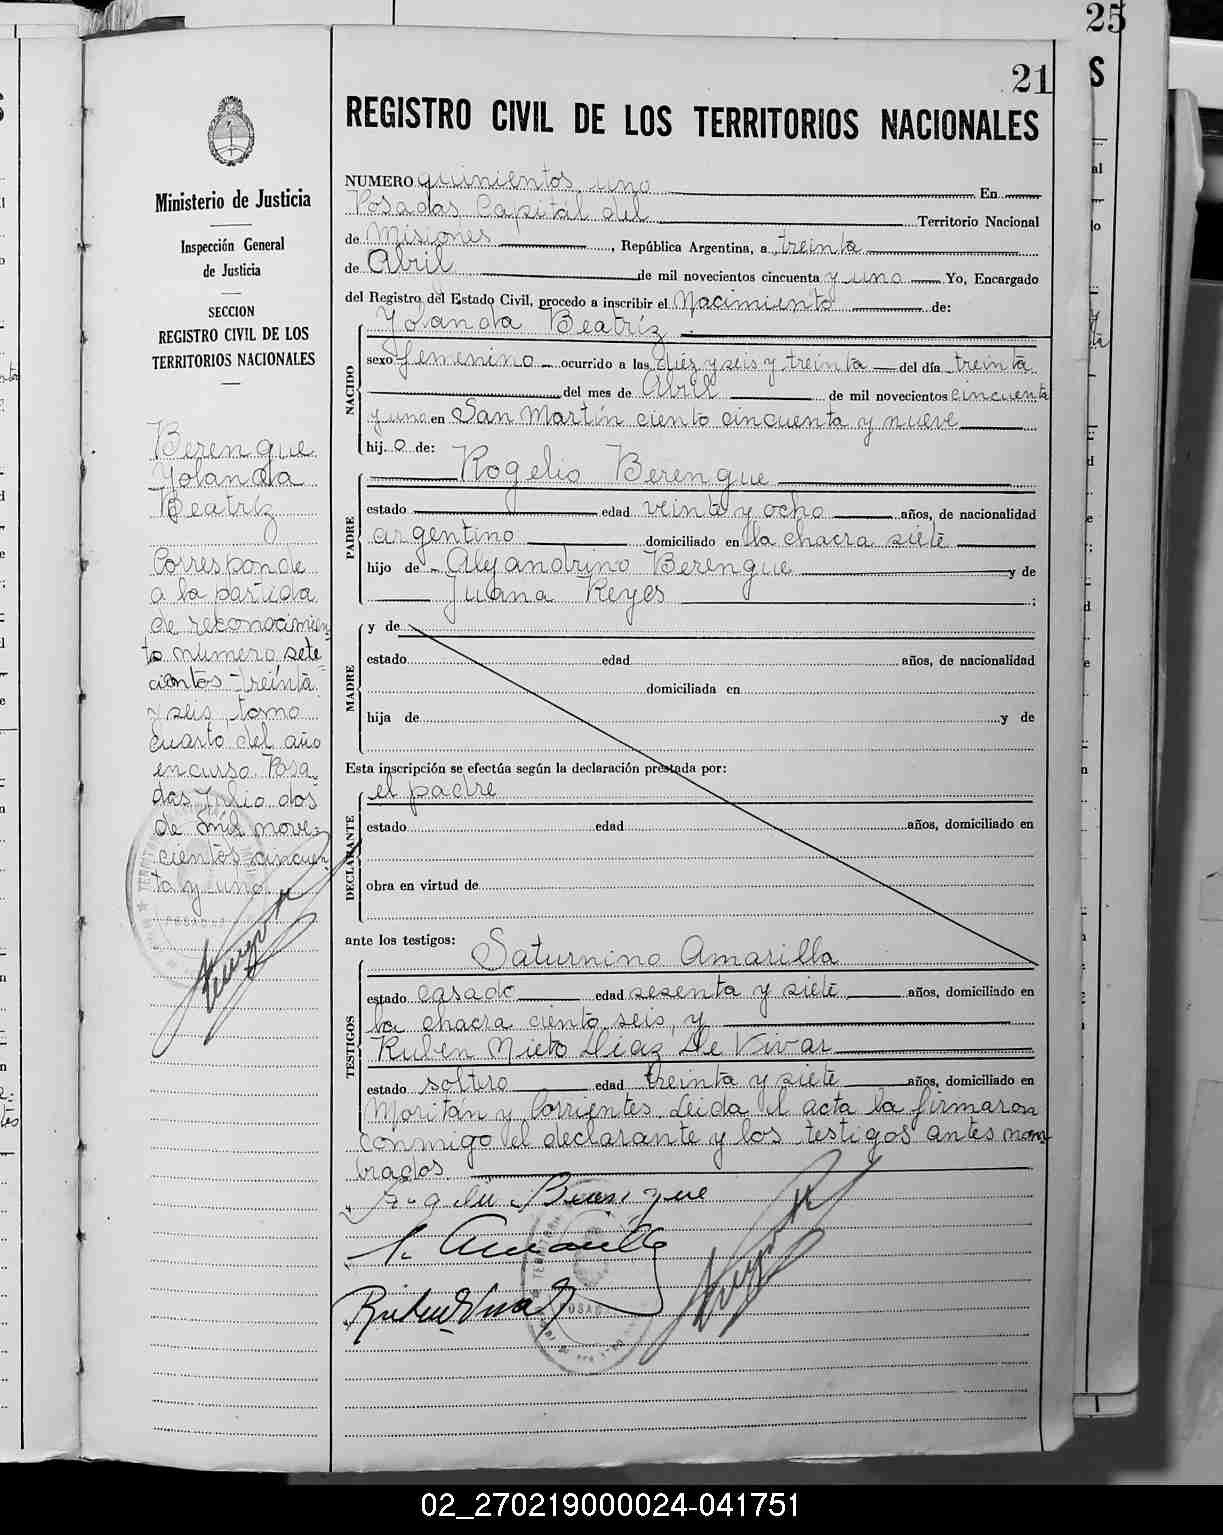 25
21
REGISTRO CIVIL DE LOS TERRITORIOS NACIONALES
Ministerio de Justicia
Inspección General
de Justicia
SECCION
REGISTRO CIVIL DE LOS
TERRITORIOS NACIONALES
Berengue
Yolanda
Beatríz
Corresponde
a la partida
de reconocimien
to número sete
cientos treinta
y seis, tomo
cuarto del año
en curso. Posa
das Julio dos
de mil nove
cientos cincuen
ta y uno
NUMERO quinientos uno En
Posadas Capital del Territorio Nacional
de Misiones, República Argentina, a treinta
de Abril de mil novecientos cincuenta y uno Yo, Encargado
del Registro del Estado Civil, procedo a inscribir el Nacimiento de:
NACIDO
Yolanda Beatríz
sexo femenino ocurrido a las diéz y seis y treinta del día treinta
del mes de Abril de mil novecientos cincuenta
y uno en San Martín ciento cincuenta y nueve
hij o de:
PADRE
Rogelio Berengue
estado edad veinte y ocho años, de nacionalidad
argentino domiciliado en la chacra siete
hijo de Alejandrino Berengue y de
Juana Reyes ;
MADRE
y de
estado edad años, de nacionalidad
domiciliada en
hija de y de
Esta inscripción se efectúa según la declaración prestada por:
DECLARANTE
el padre
estado edad años, domiciliado en
obra en virtud de
ante los testigos:
TESTIGOS
Saturnino Amarilla
estado casado edad sesenta y siete años, domiciliado en
la chacra ciento seis, y
Ruben Nieto Diaz De Vivar
estado soltero edad treinta y siete años, domiciliado en
Moritán y Corrientes. Leida el acta la firmaron
conmigo el declarante y los testigos antes nom
brados.
Rogelio Berengue
S. Amarilla
POSADAS
02_270219000024-041751